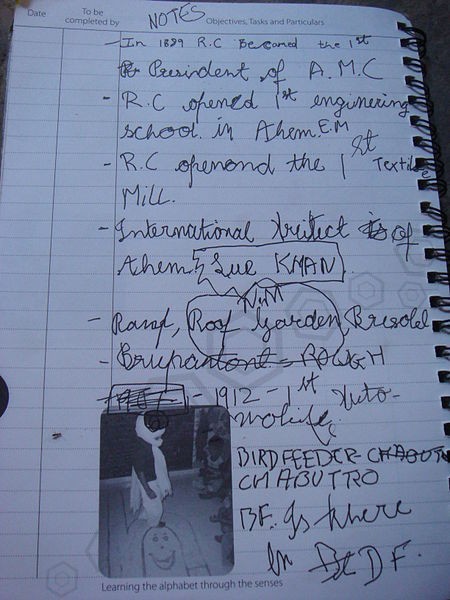 Date
To be completed by
NOTES
Objectives, Tasks and Particulars
- In 1889 R.C Becamed the 1st
President of A.M.C
- R.C opened 1st engineering
school in Ahem. E.M
- R.C openond the 1st Textile
Mill.
- International of
Ahem Lue KHAN
N.M
- Ramp, Roof Garden,
- = ROUGH
- 1912 - 1st Auto-
mobile
BIRDFEEDER - CHABUT
CHABUTRO
BF. Is there
In D F.
Learning the alphabet through the senses